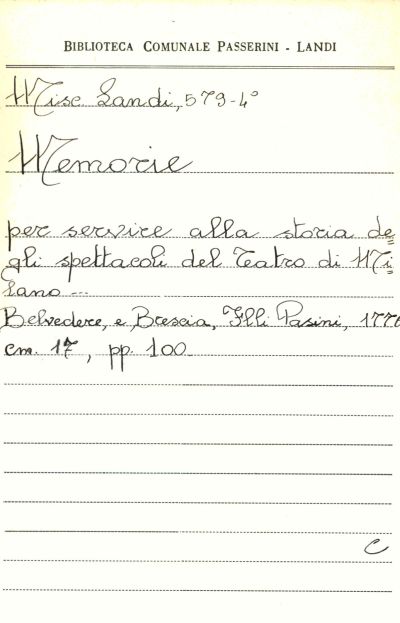 BIBLIOTECA COMUNALE PASSERINI - LANDI
Misc Landi, 579-4°
Memorie
per servire alla storia de=
gli spettacoli del Teatro di Mi=
lano ...
Belvedere, e Brescia, F.lli Pasini, 177
cm. 17, pp. 100
C